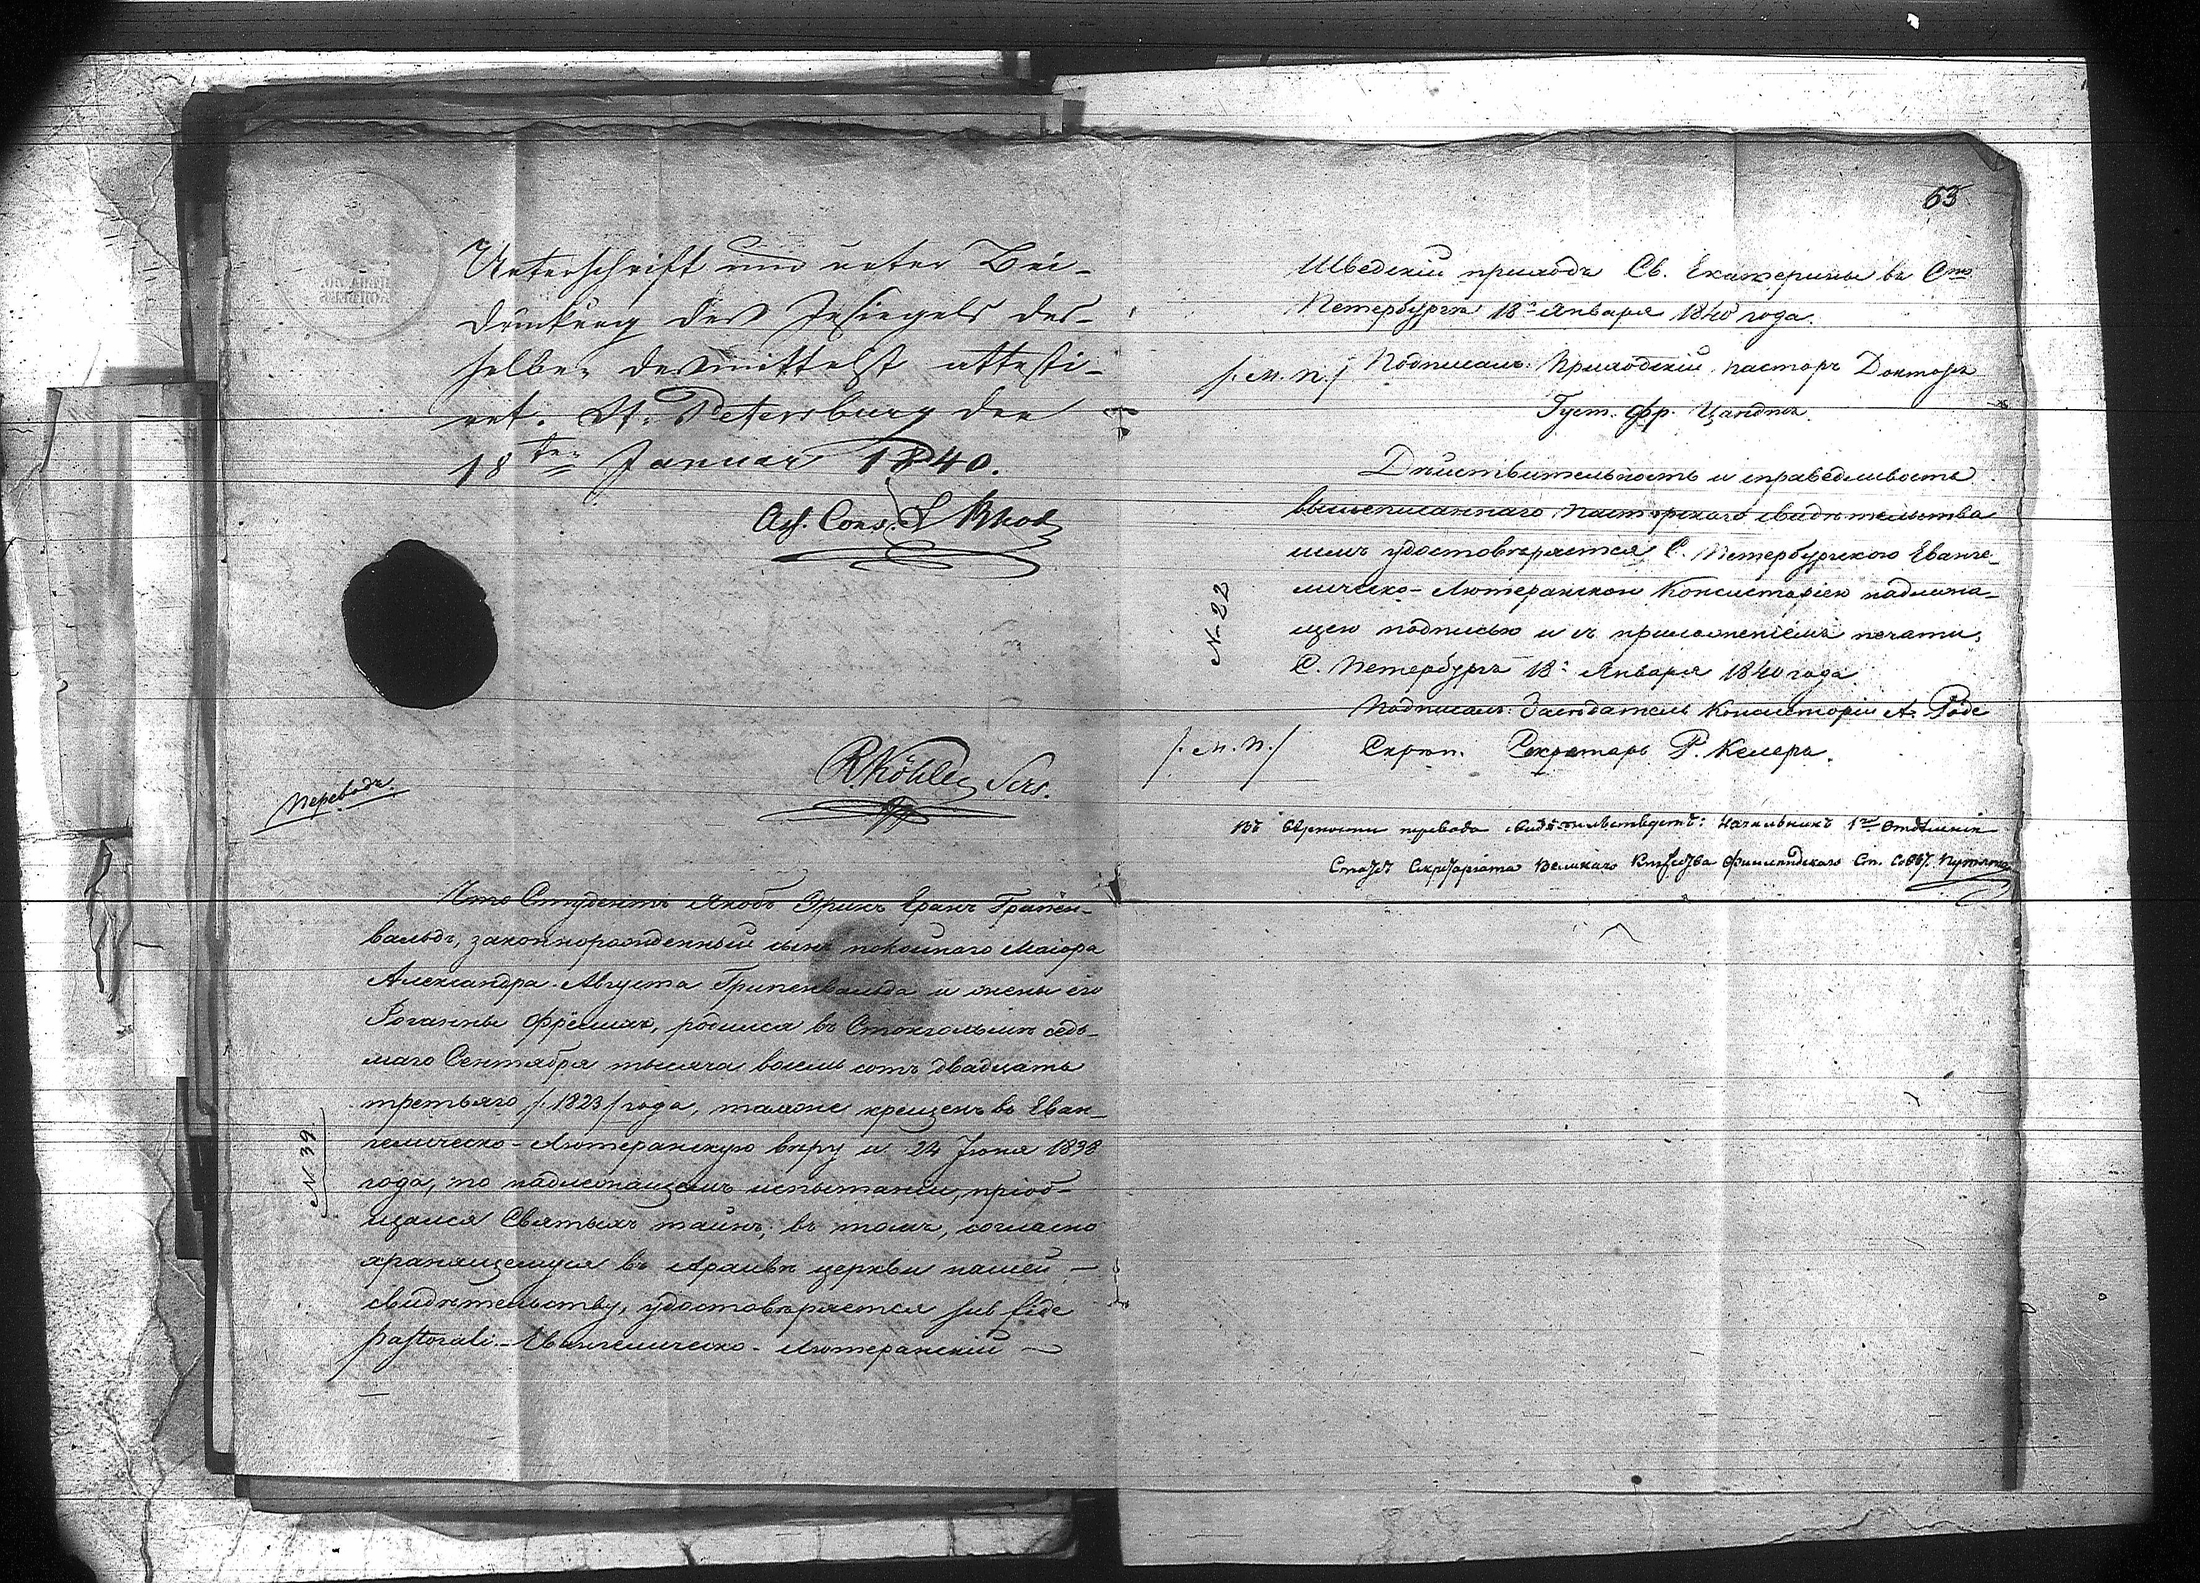 Unterschrift und unter Bei-
drückung des Insiegels des-
selben desmittelst attesti-
ret. St. Petersburg den
18ten Januar 1840.
R. Köhler Secr.
Переводъ.
Что Студентъ Якобъ Эрикъ Еранъ Грипен-
вальдъ, законнорожденный сынъ покойнаго Маiора
Александра Августа Грипенвальда и жены его
Iоганны родился въ Стокгольмѣ седь-
маго Сентября тысяча восемь сотъ двадцать
третьяго /:1823:/ года, тамже крещенъ въ Еван-
гелическо-Лютеранскую вѣру и 24 Iюня 1838
года, по надлежащемъ испытанiи, прiоб-
щался Святыхъ таинъ; въ томъ, согласно
хранящемуся въ Архивѣ церкви нашей
свидѣтельству, удостовѣряется sub fide
pastorali. Евангелическо-Лютеранскiй
N 39.
53
Шведскiй приходъ Св. Екатерины въ Стъ
Петербургѣ 18го Января 1840 года.
/:М.П.:/ Подписалъ: Приходскiй пасторъ Докторъ
Густ. Фр. Цандтъ.
Дѣйствительность и справедливость
вышеписаннаго пасторскаго свидѣтельства
симъ удостовѣряется С. Петербургскою Еванге-
лическо-Лютеранскою Консисторiею надлежа-
щею подписью и съ приложенiемъ печати,
С. Петербургъ 18го Января 1840 года.
N 22
Подписалъ: Засѣдатель Консисторiи А. Роде
/:М.П.:/ Скрѣп. Секретарь Р. Келеръ.
Въ вѣрности перевода свидѣтельствуетъ: Начальникъ 1го Отдѣленiя
Статсъ Секретарiата Великаго Княжества Финляндскаго Ст. Совѣт. Путята